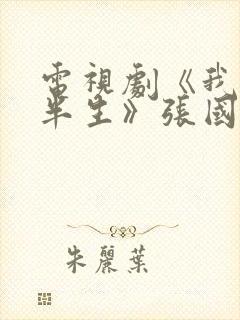 電視劇《我
半生》張國
朱麗葉